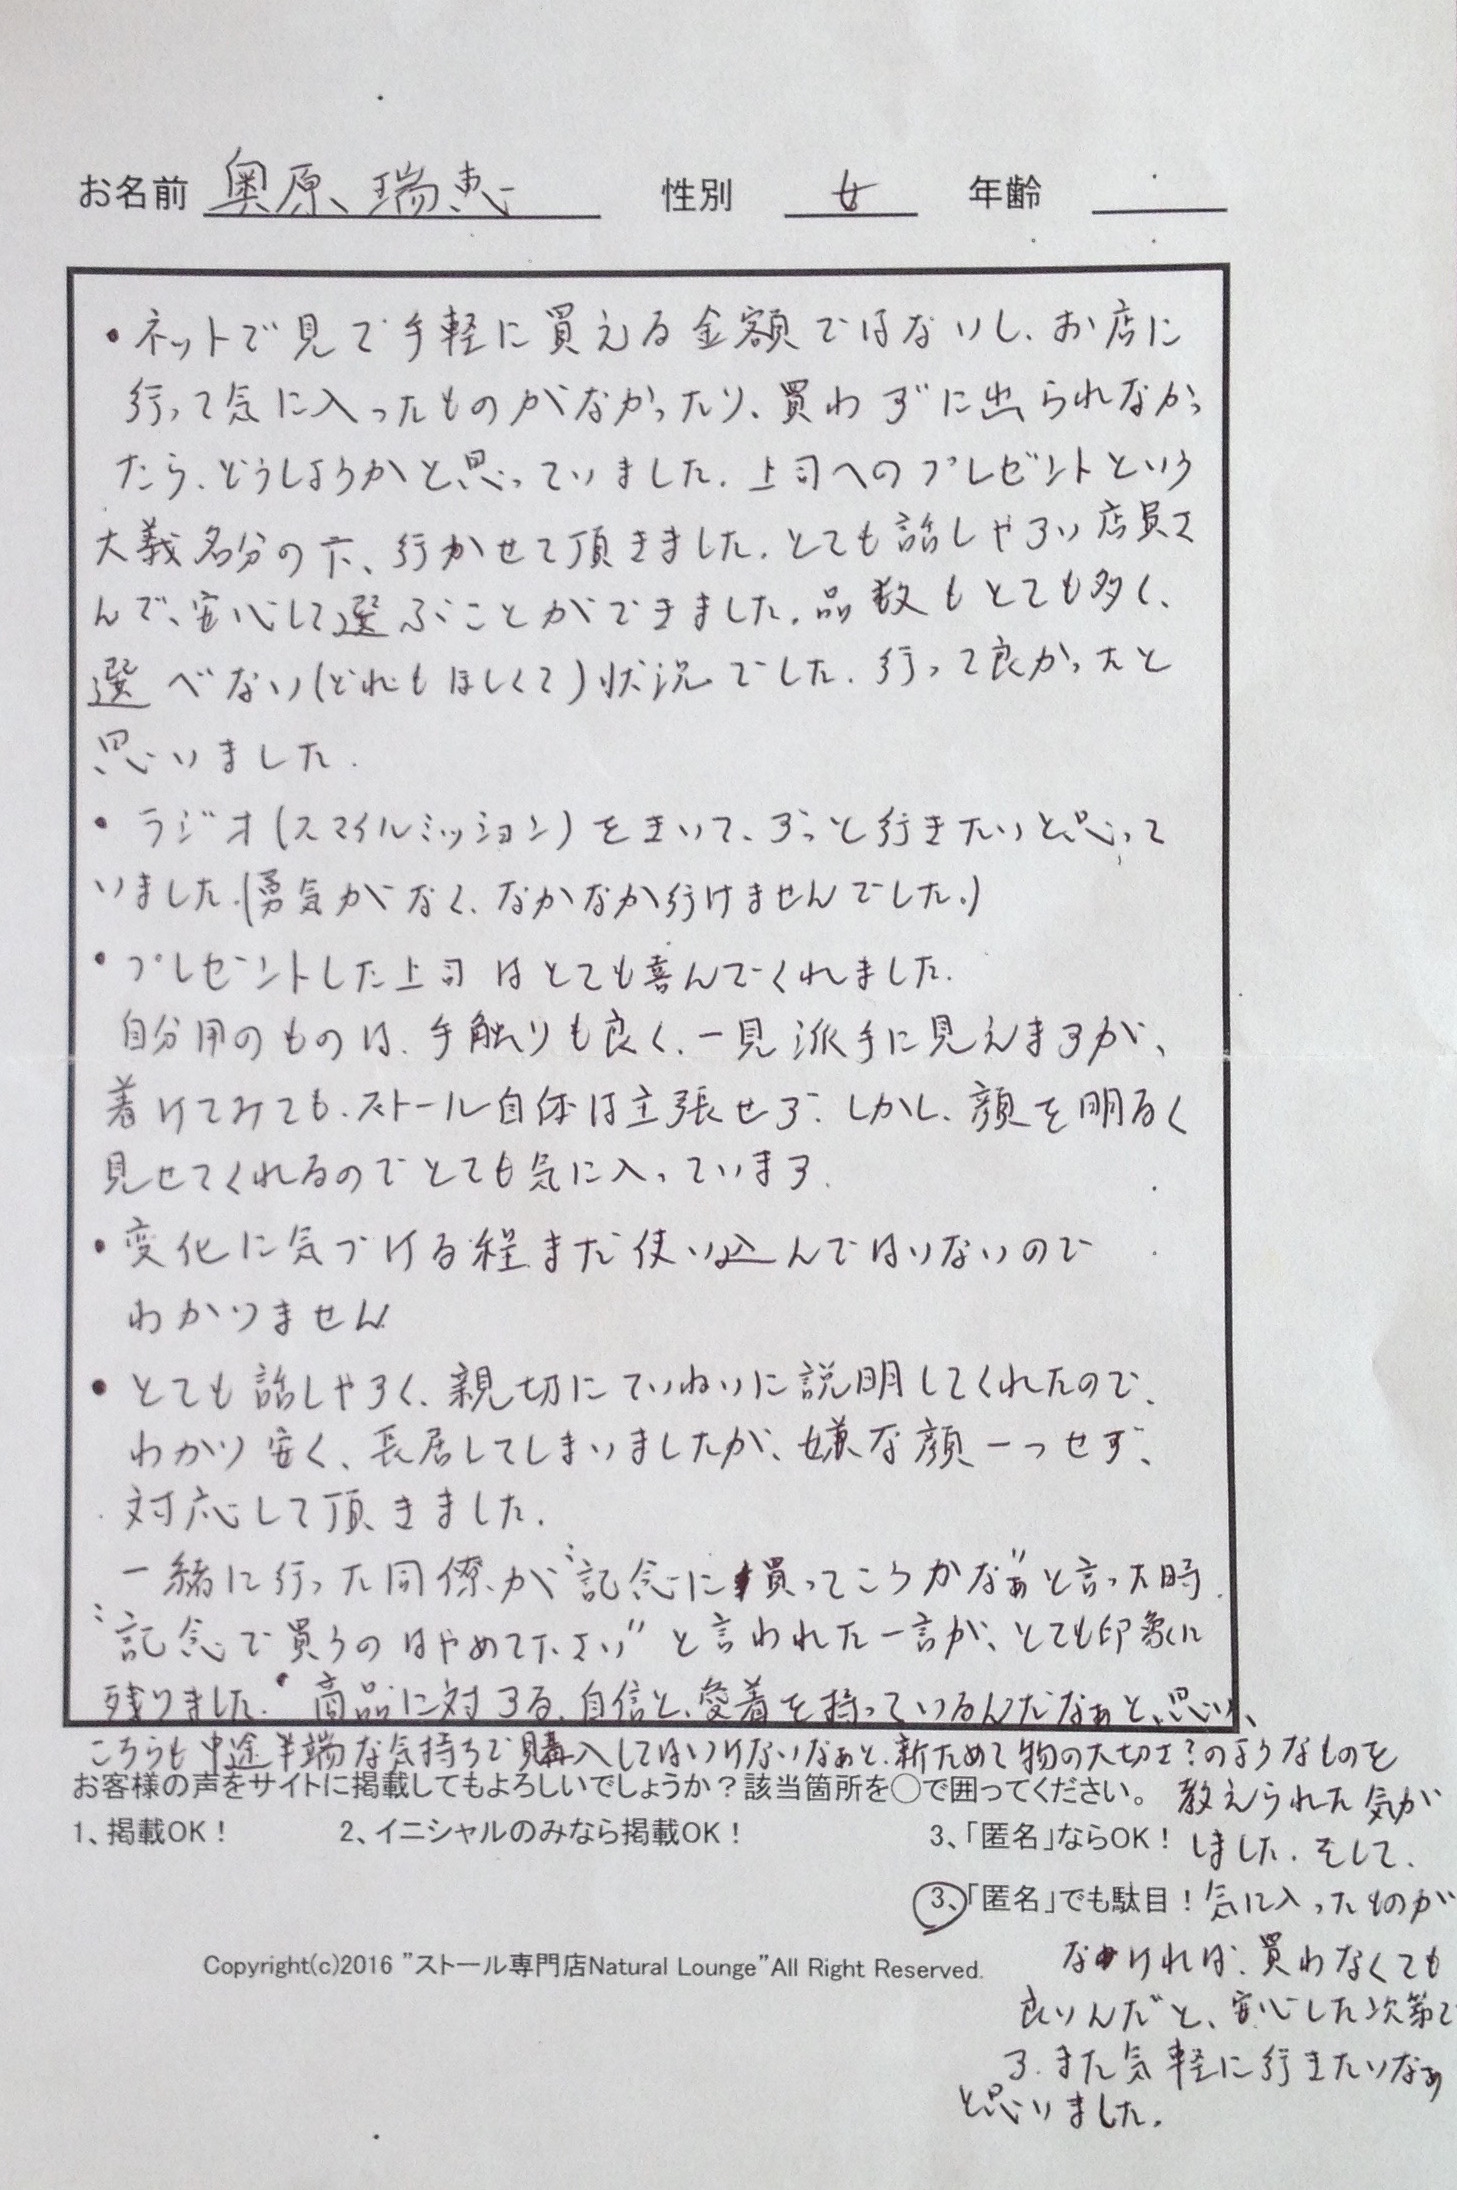 お名前 奥原 瑞恵 性別 女 年齢
・ネットで見て手軽に買える金額ではないし、お店に
行って気に入ったものがなかったり、買わずに出られなかっ
たら、どうしようかと思っていました。上司へのプレゼントという
大義名分の下、行かせて頂きました。とても話しやすい店員さ
んで、安心して選ぶことができました。品数もとても多く、
選べない(どれもほしくて)状況でした。行って良かったと
思いました。
・ラジオ(スマイルミッション)をきいて、ずっと行きたいと思って
いました。(勇気がなく、なかなか行けませんでした。)
・プレゼントした上司はとても喜んでくれました。
自分用のものは、手触りも良く、一見派手に見えますが、
着けてみても、ストール自体は主張せず、しかし、顔を明るく
見せてくれるのでとても気に入っています。
・変化に気づける程まだ使い込んではいないので
わかりません
・とても話しやすく、親切にていねいに説明してくれたので、
わかり安く、長居してしまいましたが、嫌な顔一つせず、
対応して頂きました。
一緒に行った同僚が〝記念に買ってこうかなぁ〟と言った時、
〝記念で買うのはやめて下さい〟と言われた一言が、とても印象に
残りました。・商品に対する、自信と、愛着を持っているんだなぁと、思い、
こちらも中途半端な気持ちで購入してはいけないなぁと、新ためて物の大切さ?のようなものを
お客様の声をサイトに掲載してもよろしいでしょうか?該当箇所を○で囲ってください。 教えられた気が
1、掲載OK! 2、イニシャルのみなら掲載OK! 3、「匿名」ならOK! しました。そして、
3、「匿名」でも駄目! 気に入ったものが
なければ、買わなくても
Copyright(c)2016 ”ストール専門店Natural Lounge”All Right Reserved.
良いんだと、安心した次第で
す。また気軽に行きたいなぁ
と思いました。